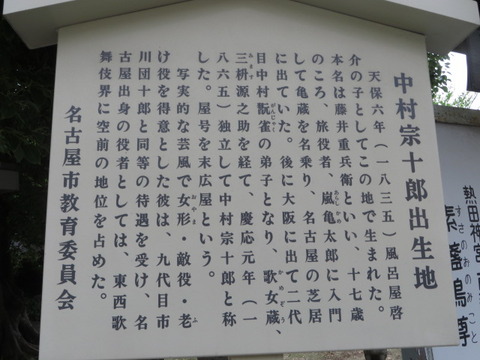 中村宗十郎出生地
天保六年（一八三五）風呂屋啓
介の子としてこの地で生まれた。
本名は藤井重兵衛といい、十七歳
のころ、旅役者、嵐亀太郎に入門
して亀蔵を名乗り、名古屋の芝居
に出ていた。後に大阪に出て二代
目中村翫雀の弟子となり、歌女蔵、
三枡源之助を経て、慶応元年（一
八六五）独立して中村宗十郎と称
した。屋号を末広屋という。
写実的な芸風で女形・敵役・老
け役を得意とした彼は、九代目市
川団十郎と同等の待遇を受け、名
古屋出身の役者としては、東西歌
舞伎界に空前の地位を占めた。
名古屋市教育委員会
熱田神宮
素盞嗚尊
すさのおのみこと